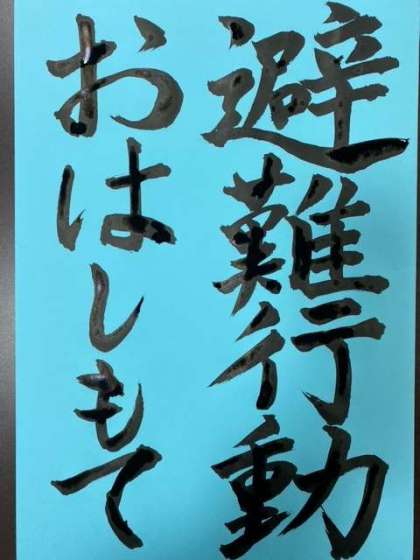 避難行動
おはしもて